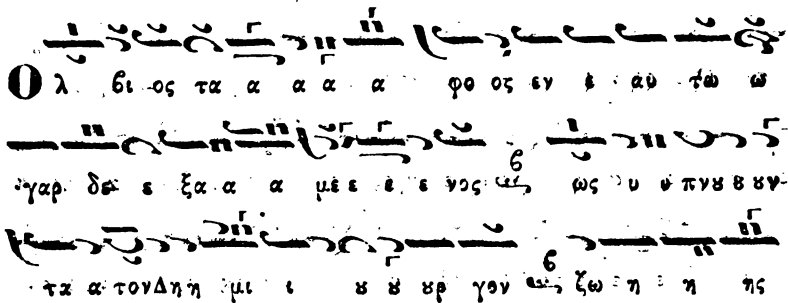 Ολ βι ος τα α α α α φο ος εν ε αυ τω ω
γαρ δε ε ξα α α με ε ε ε νος ως υ υ πνȣ ȣ ȣν
τα α τον Δη η μι ι ȣ ȣ ȣρ γον ζω η η ης